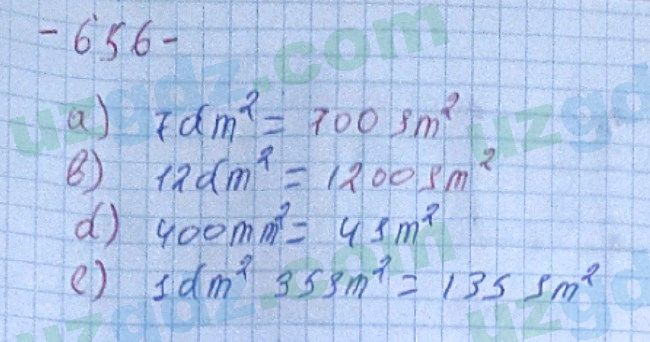 -656-
a) 7dm² = 700 sm²
b) 12dm² = 1200 sm²
d) 400mm² = 4 sm²
e) 1dm² 35sm² = 135 sm²
uzgdz.com
uzgdz.com